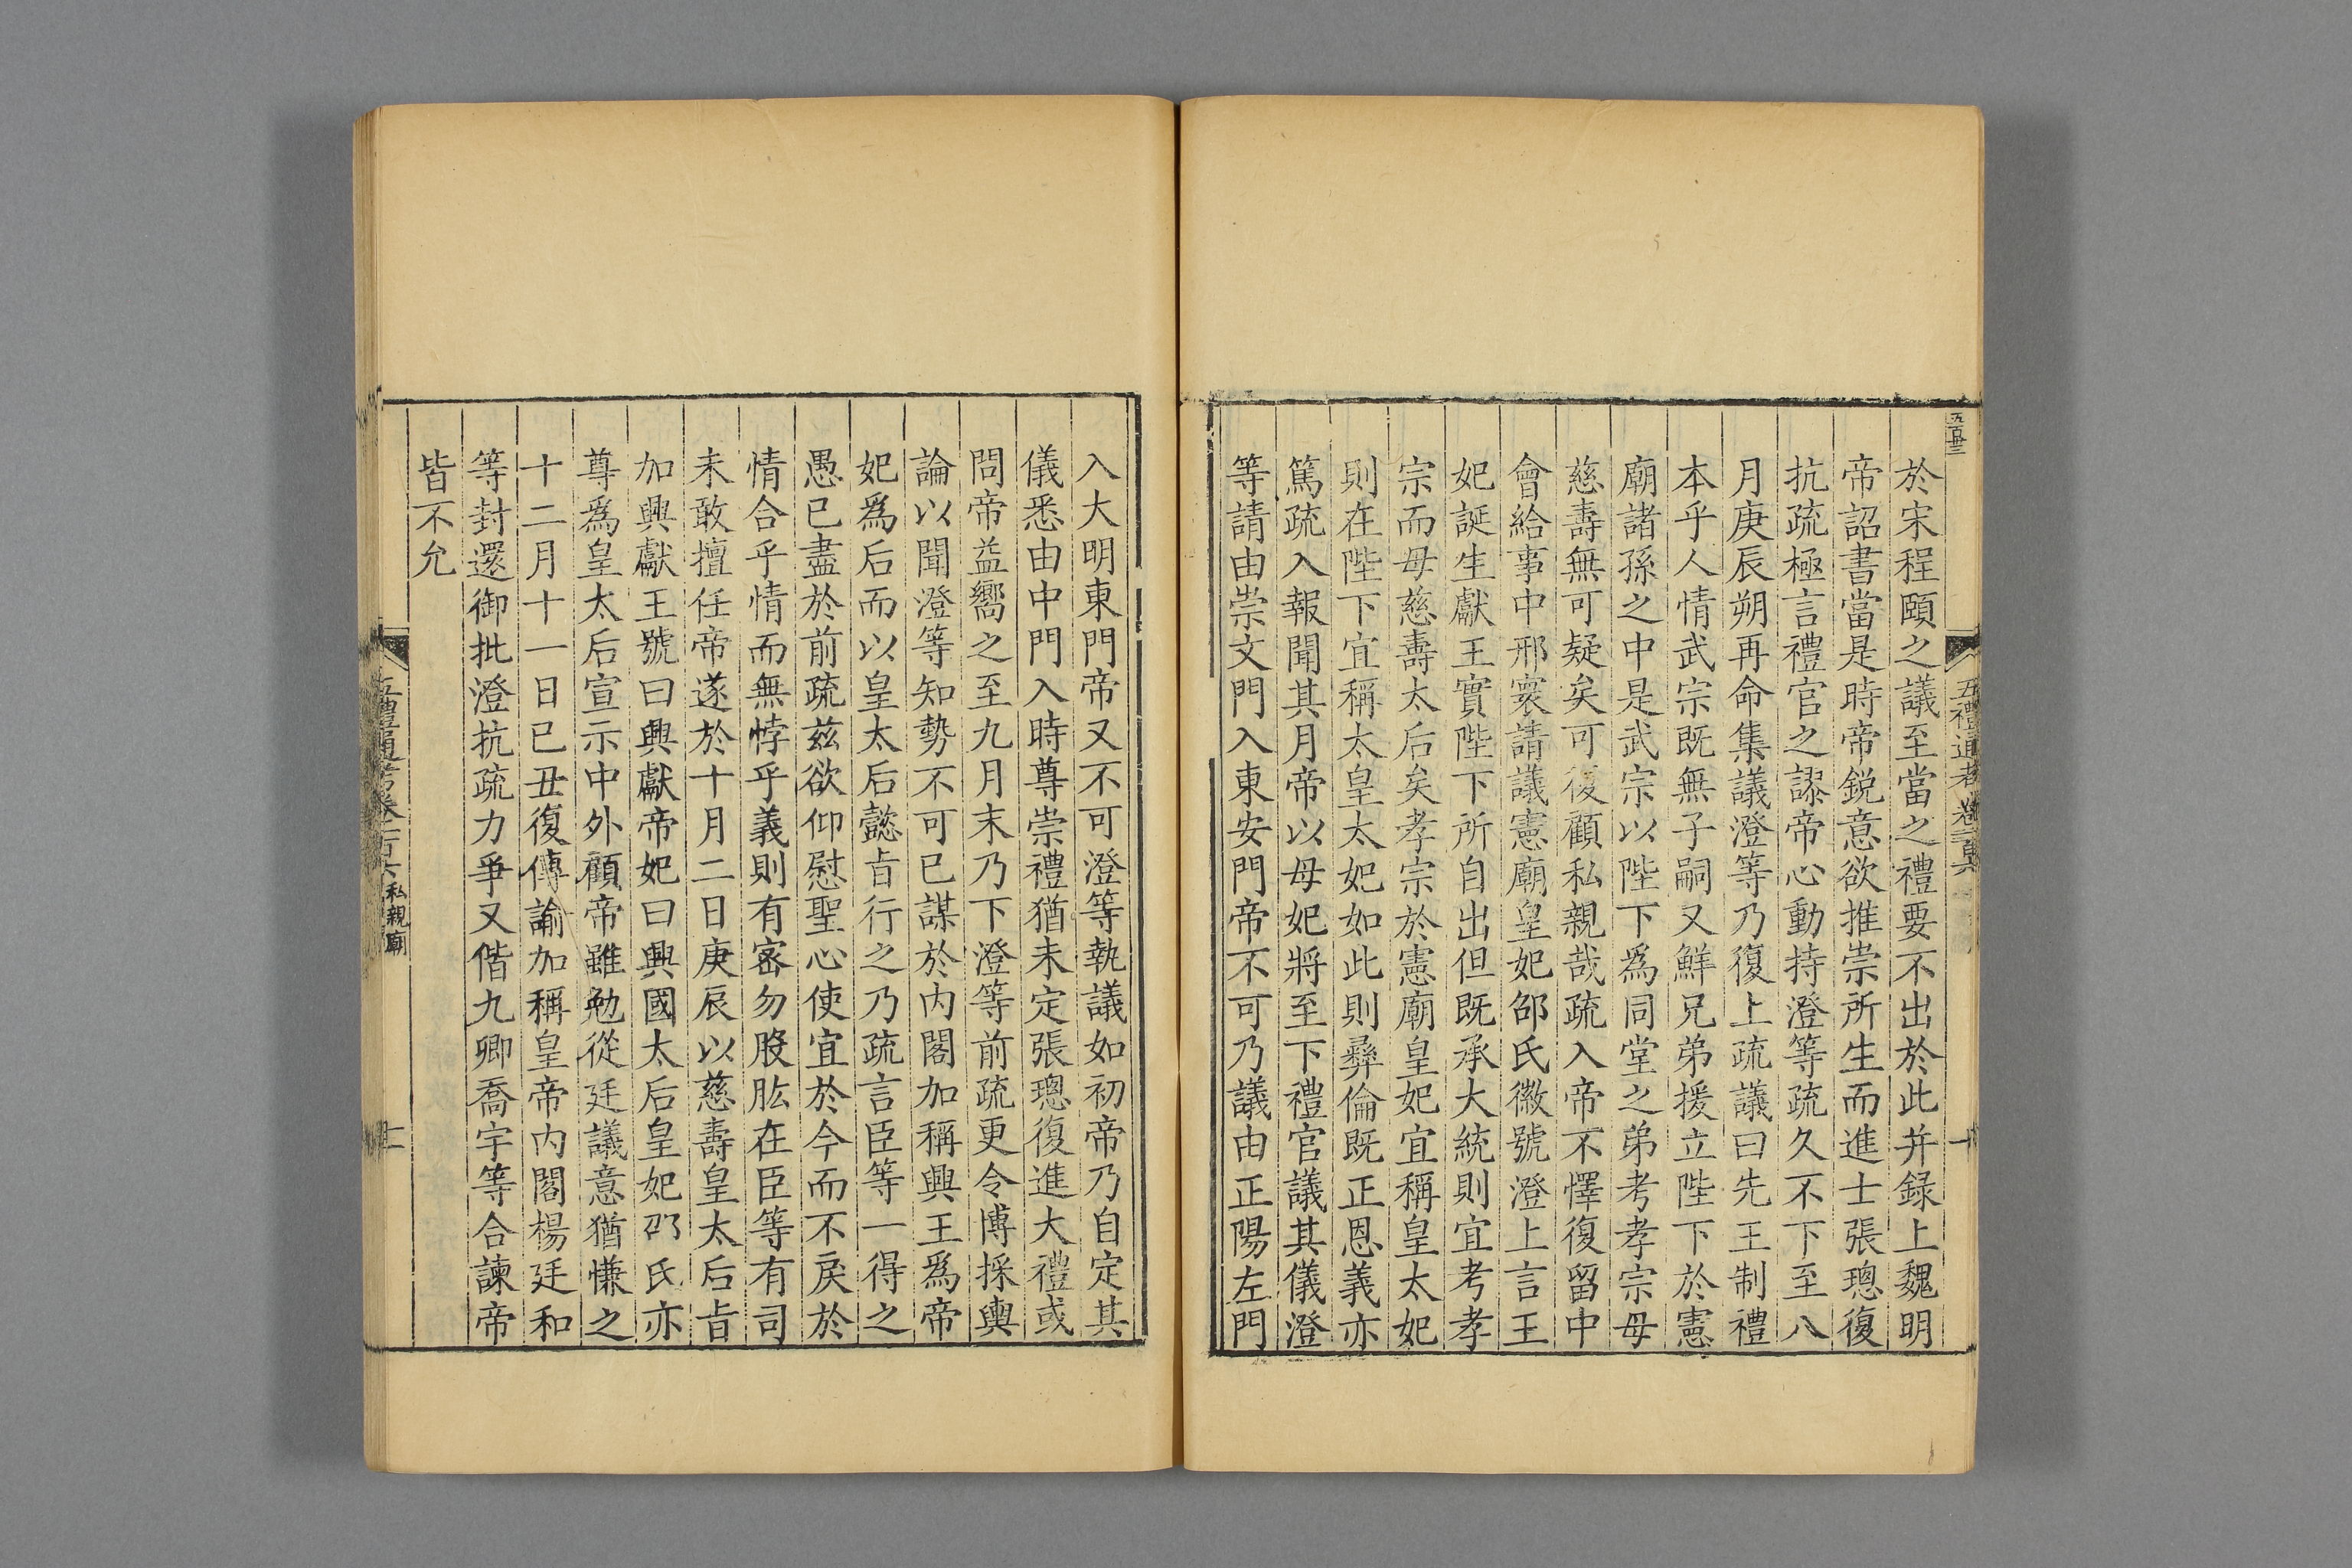 於宋程頤之議至當之禮要不出於此并録上魏明
帝詔書當是時帝鋭意欲推崇所生而進士張璁復
抗疏極言禮官之謬帝心動持澄等疏久不下至八
月庚辰朔再命集議澄等乃復上疏議曰先王制禮
本乎人情武宗既無子嗣又鮮兄弟援立陛下於憲
廟諸孫之中是武宗以陛下爲同堂之弟考孝宗母
慈壽無可疑矣可復顧私親哉疏入帝不懌復留中
會給事中邢寰請議憲廟皇妃邵氏徽號澄上言王
妃誕生獻王實陛下所自出但既承大統則宜考孝
宗而母慈壽太后矣孝宗於憲廟皇妃宜稱皇太妃
則在陛下宜稱太皇太妃如此則彝倫既正恩義亦
篤疏入報聞其月帝以母妃將至下禮官議其儀澄
等請由崇文門入東安門帝不可乃議由正陽左門
五百卅三
五禮通考卷一百六
十
入大明東門帝又不可澄等執議如初帝乃自定其
儀悉由中門入時尊崇禮猶未定張璁復進大禮或
問帝益嚮之至九月末乃下澄等前疏更令博採輿
論以聞澄等知勢不可已謀於内閣加稱興王爲帝
妃爲后而以皇太后懿㫖行之乃疏言臣等一得之
愚已盡於前疏兹欲仰慰聖心使宜於今而不戾於
情合乎情而無悖乎義則有密勿股肱在臣等有司
未敢擅任帝遂於十月二日庚辰以慈壽皇太后㫖
加興獻王號曰興獻帝妃曰興國太后皇妃邵氏亦
尊爲皇太后宣示中外顧帝雖勉從廷議意猶慊之
十二月十一日已丑復傳諭加稱皇帝内閣楊廷和
等封還御批澄抗疏力爭又偕九卿喬宇等合諫帝
皆不允
五禮通考卷一百六 私親廟